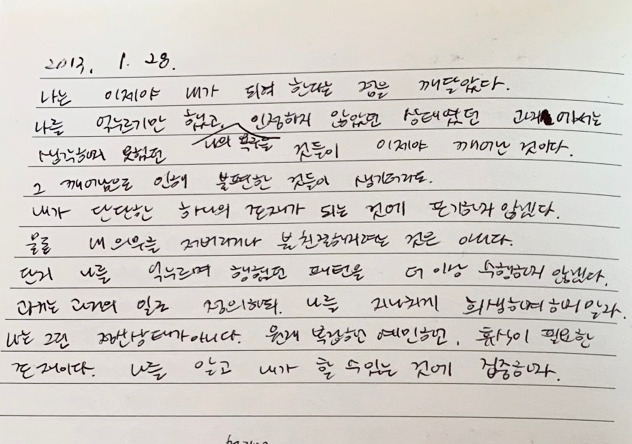 2013. 1. 28.
나는 이제야 내가 되려 한다는 것을 깨달았다.
나를 억누르기만 했고, 나의 욕구를 인정하지 않았던 상태였던 과거에서는
생각하지 못했던 것들이 이제야 깨어난 것이다.
그 깨어남으로 인해 불편한 것들이 생기더라도.
내가 단단한 하나의 존재가 되는 것에 포기하지 않겠다.
물론 내 의무를 저버리거나 불친절해지려는 것은 아니다.
단지 나를 억누르며 행했던 패턴을 더 이상 수행하지 않겠다.
과거는 과거의 일로 정의하되. 나를 지나치게 희생하려 하지 말라.
나는 그런 정신상태가 아니다. 원래 복잡하면 예민하면, 휴식이 필요한
존재이다. 나를 알고 내가 할 수 있는 것에 집중하라.